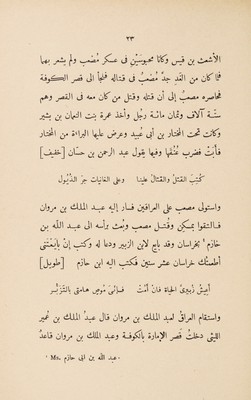 ٢٣
الأشعث بن قيس وكانا محبوسَيْن فى عسكر مُصْعَب ولم يشعر بهما
فلما كان من الغد جدَّ مُصْعَبٌ فى قتاله فلجأ الى قصر الكوفة
فحاصره مصعبٌ إلى أن قتله وقتل من كان معه فى القصر وهم
ستّة آلاف وثمان مائة رجل وأخذ عمرة بنت النعمان بن بشير
وكانت تحت المختار بن أبى عُبيد وعرض عليها البراءة من المختار
فأبَتْ فضرب عُنُقها وفيها يقول عبد الرحمن بن حسّان [خفيف]
كُتِبَ القتلُ والقتالُ علينا وعلى الغانيات جرّ الذُّيُول
واستولى مصعب على العراقين فسار إليه عبد الملك بن مروان
فالتقوا بمسكِن وقُتل مصعب وبُعث برأسه الى عبد اللّه بن
خازم ¹ بخراسان وقد بايع لابن الزبير ودعا له وكتب إنْ بايَعْتَنى
أطعمتُك خراسان عشر سنين فكتب اليه ابن خازم [طويل]
أعيشُ زُبيرىّ الحياة فان أمُتْ فإنّى مُوصٍ هامتى بالتزبُّر
واستقام العراق لعبد الملك بن مروان قال عبدُ الملك بن عُمير
الليثى دخلتُ قصر الإمارة بالكوفة وعبد الملك بن مروان قاعدٌ
¹ Ms. عبد اللّه بن ابى حازم.